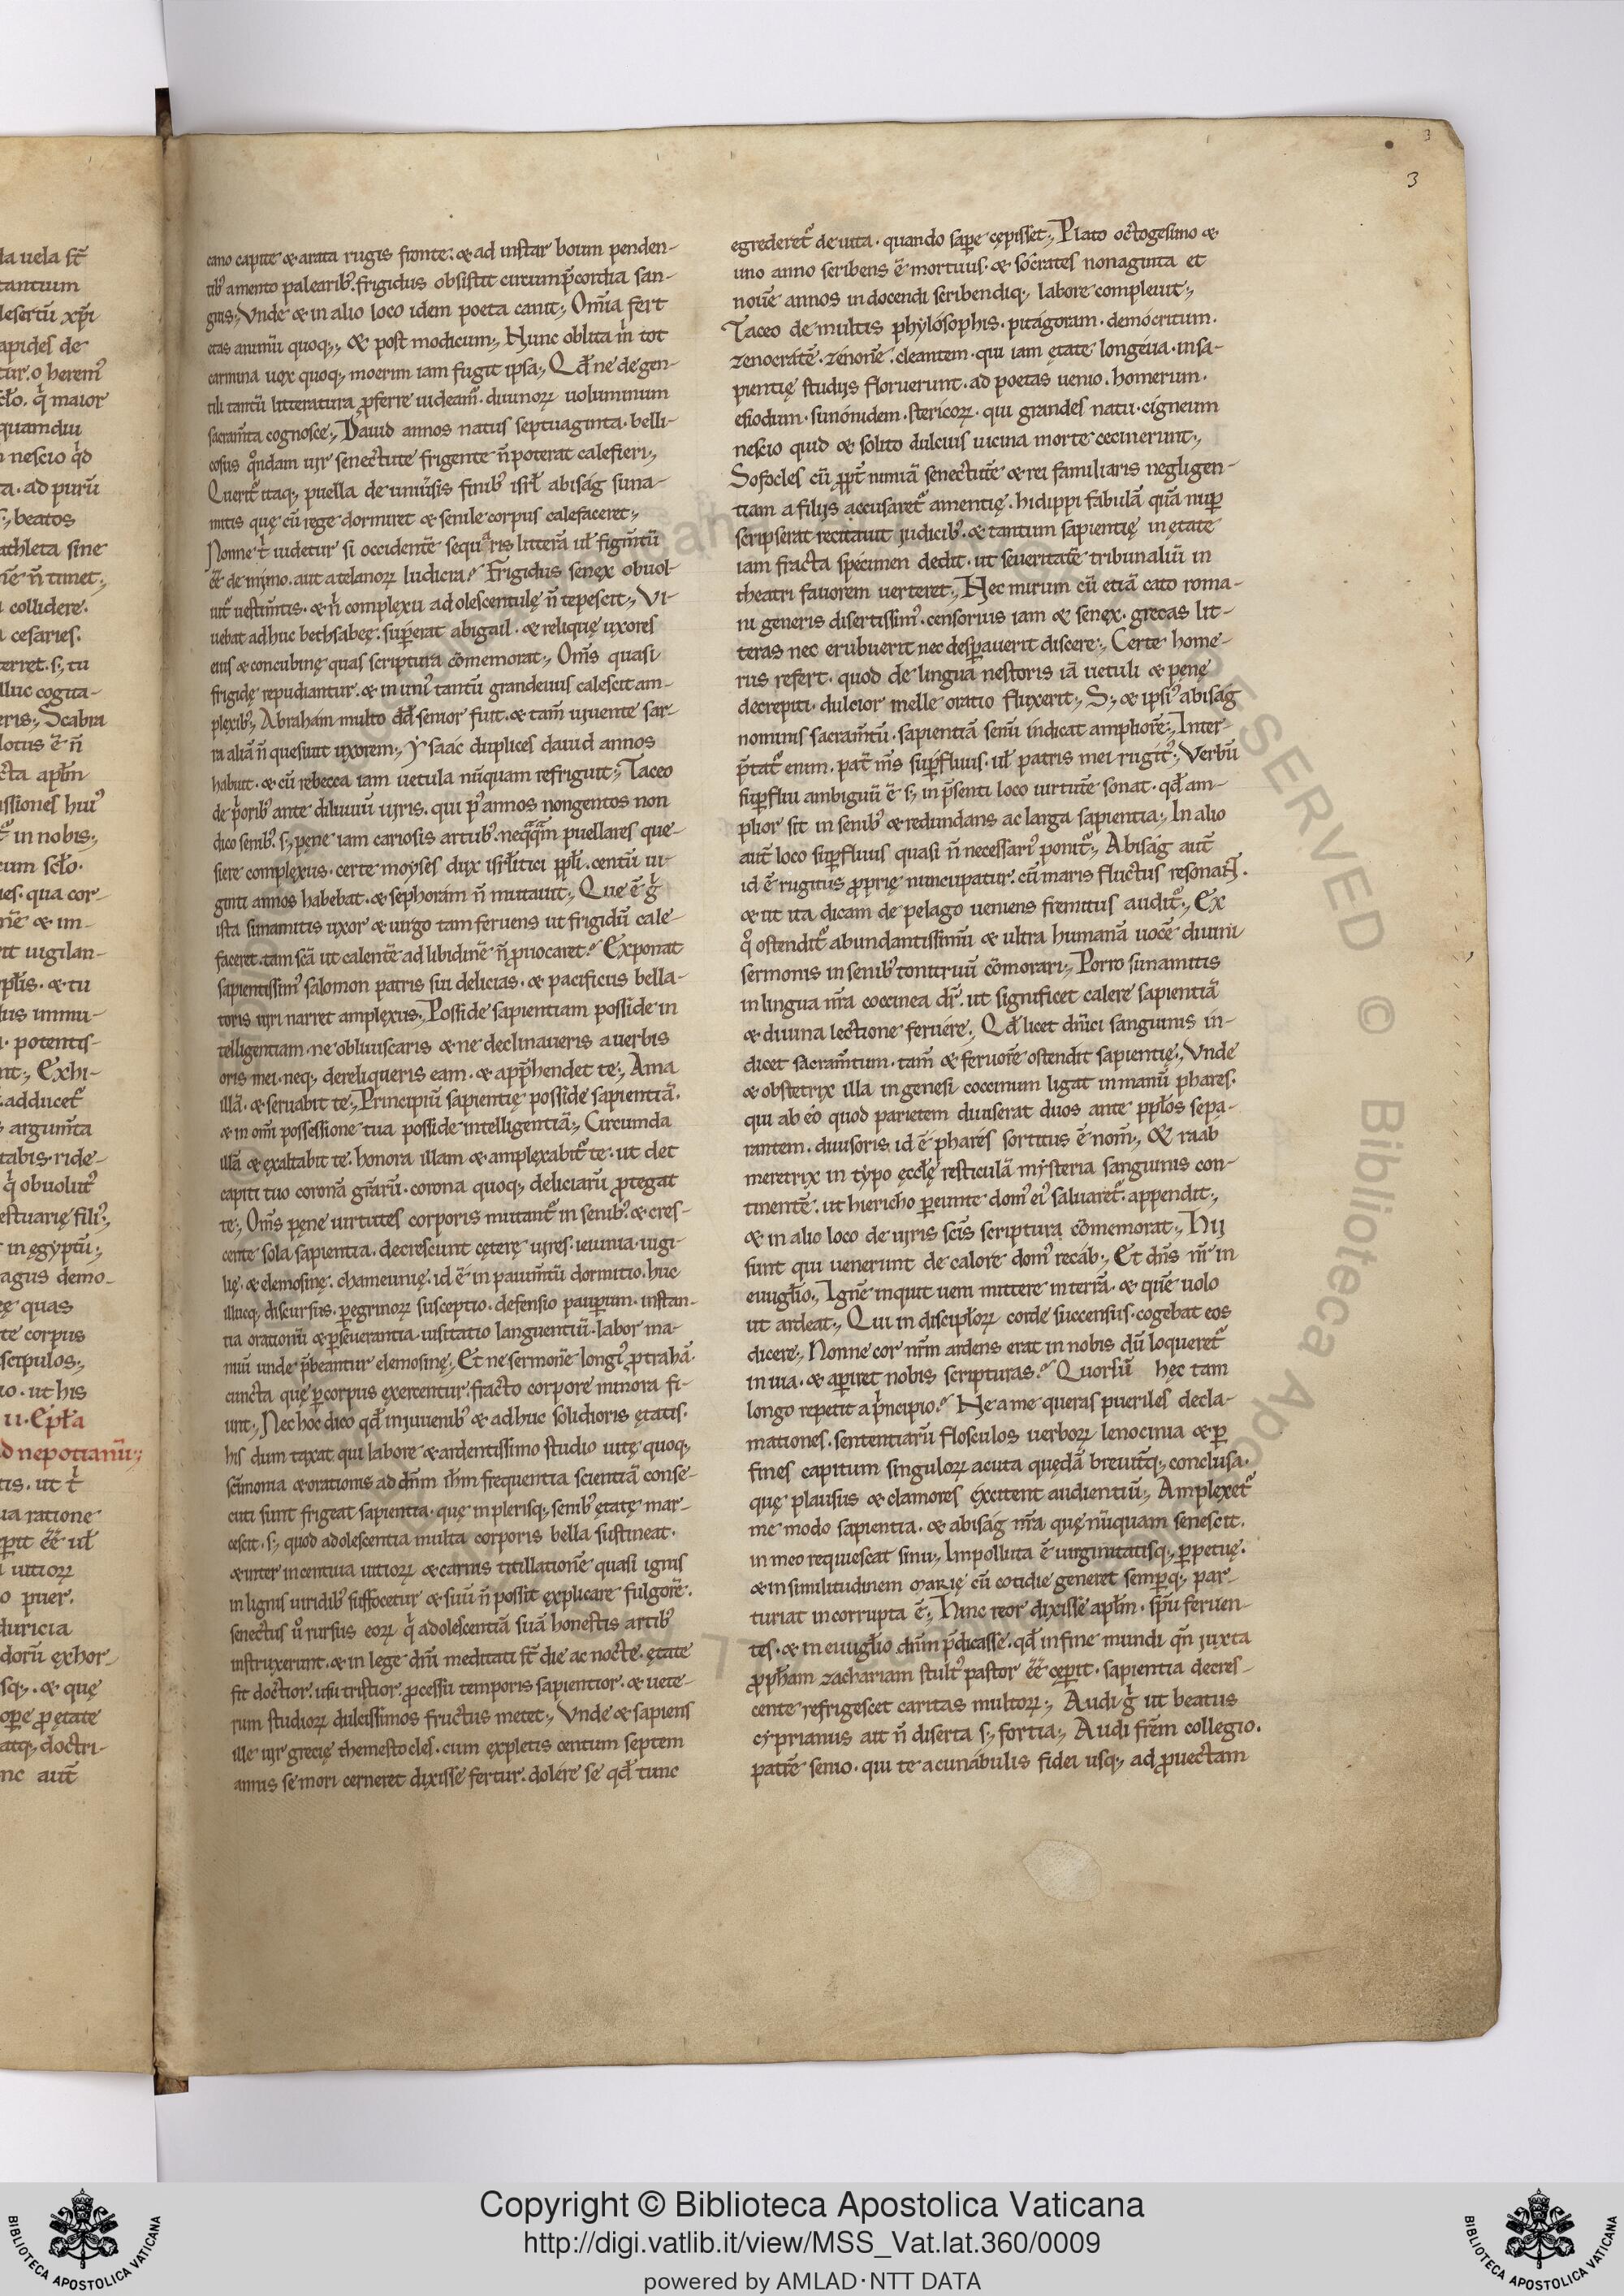 la uela st̄
tantium
desertū xp̄i
apides de
tur. o herem᾽
clo. q̇ maior
quamdiu
nescio q̇d
ta. ad purū
beatos
athleta sine
n̄ timet
collidere.
cesaries.
terret. s; tu
illuc cogita-
eris. Scabra
lotus ē n̄
cta apl̄m
ssiones hui᾽
in nobis
cum sclo.
es. qua cor-
nē & im-
rit uigilan-
& tu
lus immu-
potentis-
nt. Exhi-
adducet᷑
argum̄ta
tabis. ride-
q̇ obuolut᾽
estuarię fili᾽
in ęgyptū
agus demo-
quas
te corpus
scipulos
ut his
ii. Epl̄a
ad nepotianū
tis. ut t̊
ua ratione
pit ēē ul̄
uitioꝝ
puer.
duricia
dorū ęxhor-
sq;. & quę
ope ꝓ ętate
atq; doctri-
nc aut̄
cano capite & arata rugis fronte. & ad instar boum penden-
tib᾽ amento palearib᾽. frigidus obsistit circum p̄cordia san-
guis. Vnde & in alio loco idem poeta canit. Om̄ia fert
ętas animū quoq;. & post modicum. Nunc oblita m̊ tot
carmina uox quoq; moerim iam fugit ipsa. Qd̄ ne de gen-
tili tantū litteratura ꝓferre uideam᾽. diuinoꝝ uoluminum
sacram̄ta cognosce. Dauid annos natus septuaginta. belli-
cosus q̊ndam uir senectute frigente n̄ poterat calefieri.
Querit᷑ itaq; puella de uniūsis finib᾽ isrl̄ abiság suna-
mitis quę cū rege dormiret & senile corpus calefaceret.
Nonne t̊ uidetur si occidentē sequaris litterā ul̄ figm̄tū
ēē de mimo. aut atelanoꝝ ludicra? Frigidus senex obuol-
uit᷑ uestim̄tis. & n̊ complexu adolescentulę n̄ tepescit. Vi-
uebat adhuc bethsabeę. supererat abigail. & reliquę uxores
eius & concubinę quas scriptura cōmemorat. Om̄s quasi
frigidę repudiantur. & in uni᾽ tantū grandeuus calescit am-
plexib᾽. Abrahám multo dd̄ senior fuit. & tam̄ uiuente sar-
ra aliā n̄ quesiuit uxorem. Ysaác duplices dauid annos
habuit. & cū rebecca iam uetula nūquam refriguit. Taceo
de p̊orib᾽ ante diluuiū uiris. qui p᾽ annos nongentos non
dico senib᾽. s; pęne iam cariosis artub᾽. neqq̄m puellares que-
siere complexus. certe moyses dux isrl̄itici ppl̄i. centū ui-
ginti annos habebat. & sephorám n̄ mutauit. Que ē g̊
ista sunamitis uxor & uirgo tam feruens ut frigidū cale-
faceret. tam scā ut calentē ad libidinē n̄ ꝓuocaret? Exponat
sapientissim᾽ salomon patris sui delicias. & pacificus bella-
toris uiri narret amplexus. Posside sapientiam posside in
telligentiam. ne obliuiscaris & ne declinaueris a uerbis
oris mei. neq; dereliqueris eam. & app̄hendet te. Ama
illā. & seruabit te. Principiū sapientię posside sapientiā.
& in om̄i possessione tua posside intelligentiā. Circumda
illā & ęxaltabit te. honora illam & amplęxabit᷑ te. ut det
capiti tuo coronā grārū. corona quoq; deliciarū ꝓtegat
te. Om̄s pęne uirtutes corporis mutant᷑ in senib᾽. & cres-
cente sola sapientia. decrescunt cęterę uires. ieiunia. uigi-
lię. & elemosinę. chameunię. id ē in pauim̄tū dormitio. huc
illucq; discursus. peregrinoꝝ susceptio. defensio pauperum. instan-
tia orationū & perseuerantia. uisitatio languentiū. labor ma-
nuū unde p̄beantur elemosinę. Et ne sermonē longi᾽ ꝓtrahā.
cuncta quę ꝑ corpus ęxercentur. fracto corpore minora fi-
unt. Nec hoc dico qd̄ in iuuenib᾽ & adhuc solidioris ętatis.
his dum taxat qui labore & ardentissimo studio uitę quoq;
scīmonia & orationis ad dn̄m ih̄m frequentia scientiā conse-
cuti sunt frigeat sapientia. quę in plerisq; senib᾽ ętatę mar-
cescit. s; quod adolescentia multa corporis bella sustineat.
& inter incentiua uitioꝝ & carnis titillationē quasi ignis
in lignis uiridib᾽ suffocetur & suū n̄ possit ęxplicare fulgorē.
senectus ů rursus eoꝝ q̇ adolescentiā suā honestis artib᾽
instruxerunt. & in lege dn̄i meditati st̄ die ac nocte. ętate
fit doctior. usu tristior. ꝓcessu temporis sapientior. & uete-
rum studioꝝ dulcissimos fructus metet. Vnde & sapiens
ille uir grecię themestocles. cum ęxpletis centum septem
annis se mori cerneret dixisse fertur. dolére se qd̄ tunc
egrederet᷑ de uita. quando sapere cępisset. Plato octogesimo &
uno anno scribens ē mortuus. & sócrates nonaginta et
nouē annos in docendi scribendiq; labore compleuit.
Taceo de multis phylósophis. pitágoram. demócritum.
zenocrátē. zénonē. cleantem. qui iam ętate longéua. in sa-
pientię studijs floruerunt. ad poetas uenio. homerum.
esiodum. simónidem. stericoꝝ. qui grandes natu. cigneum
nescio quid & solito dulcius uicina morte cecinerunt.
Sofocles cū ꝓpt᷑ nimiā senectutē & rei familiaris negligen-
tiam a filijs accusaret᷑ amentię. hidippi fabulā quā nuper
scripserat recitauit judicib᾽. & tantum sapientię in ętate
iam fracta spécimen dedit. ut seueritatē tribunaliū in
theatri fauorem uerteret. Hec mirum cū etiā cato roma-
ni generis disertissim᾽. censorius iam & senęx. grecas lit-
teras nec erubuerit nec desperauerit discere. Certe home-
rus refert. quod de lingua nestoris iā uetuli & pęnę
decrepiti. dulcior melle oratio fluxerit. S; & ipsi᾽ abiság
nominis sacram̄tū. sapientiā senū indicat ampliorē. Inter-
p̄tat᷑ enim. pat᷑ m̄s superfluus. ul̄ patris mei rugit᾽. Verbū
superflui ambiguū ē s; in p̄senti loco uirtutē sonat. qd̄ am-
plior sit in senib᾽ & redundans ac larga sapientia. In alio
aut̄ loco superfluus quasi n̄ necessari᾽ ponit᷑. Abiság aut̄
id ē rugitus ꝓprię nuncupatur. cū maris fluctus resonat.
& ut ita dicam de pelago ueniens fremitus audit᷑. Ex
q̊ ostendit᷑ abundantissimū & ultra humanā uocē diuini
sermonis in senib᾽ tonitruū cōmorari. Porro sunamitis
in lingua nr̄a coccinea dr̄. ut significet calere sapientiā
& diuina lectione feruére. Qd̄ licet dn̄ici sanguinis in-
dicet sacram̄tum. tam̄ & feruorē ostendit sapientię. Vnde
& obstetrix illa in genesi coccinum ligat in manū phares.
qui ab eo quod parietem diuiserat duos ante ppl̄os sepa-
rantem. diuisoris id ē pharés sortitus ē nom̄. & raab
meretrix in typo ęccl̄ę resticulā mysteria sanguinis con-
tinentē. ut hiericho pereunte dom᾽ ei᾽ saluaret᷑. appendit.
& in alio loco de uiris scīs scriptura cōmemorat. Hij
sunt qui uenerunt de calore dom᾽ recáb. Et dn̄s nr̄ in
euuglio. Ignē inquit ueni mittere in terrā. & quē uolo
ut ardeat. Qui in discipl̄oꝝ corde succensus. cogebat eos
dicere. Nonne cor nr̄m ardens erat in nobis dū loqueret᷑
in uia. & aperiret nobis scripturas? Quorsū hęc tam
longo repetit a p̊ncipio? Ne a me queras pueriles decla-
mationes. sententiarū flosculos uerboꝝ lenocinia & ꝑ
fines capitum singuloꝝ acuta quędā breuit᷑q; conclusa.
quę plausus & clamores éxcitent audientiū. Amplexet᷑
me modo sapientia. & abiság nr̄a quę nūquam senescit.
in meo requiescat sinu. Impolluta ē uirginitatisq; ꝑpetuę.
& in similitudinem marię cū cotidie generet semperq; par-
turiat incorrupta ē. Hinc reor dixisse apl̄m. spū feruen-
tes. & in euuglio dn̄m p̄dicasse. qd̄ in fine mundi qn̄ juxta
ꝓph̄am zachariam stult᾽ pastor ēē ceperit. sapientia decres-
cente refrigescet caritas multoꝝ. Audi g̊ ut beatus
cyprianus ait n̄ diserta s; fortia. Audi frēm collegio.
patrē senio. qui te a cunábulis fidei usq; ad ꝓuectam
3
3
© Biblioteca Apo
Copyright © Biblioteca Apostolica Vaticana
http://digi.vatlib.it/view/MSS_Vat.lat.360/0009
powered by AMLAD·NTT DATA
BIBLIOTECA APOSTOLICA VATICANA
BIBLIOTECA APOSTOLICA VATICANA